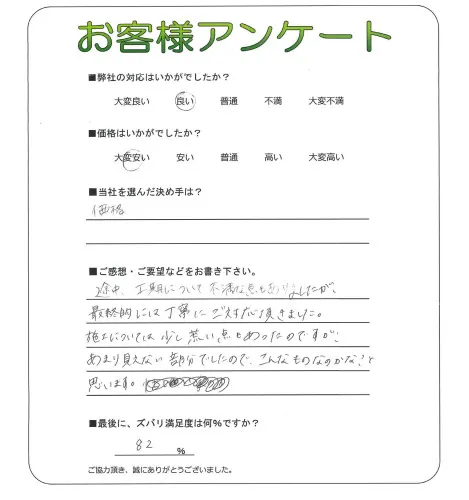 お客様アンケート
■弊社の対応はいかがでしたか?
大変良い 良い 普通 不満 大変不満
■価格はいかがでしたか?
大変安い 安い 普通 高い 大変高い
■当社を選んだ決め手は?
価格
■ご感想・ご要望などをお書き下さい。
途中、工期について不満な点もありましたが、
最終的には丁寧にご対応頂きました。
施工については少し荒い点もあったのですが、
あまり見えない部分でしたので、こんなものなのかな?と
思います。
■最後に、ズバリ満足度は何%ですか?
82 %
ご協力頂き、誠にありがとうございました。